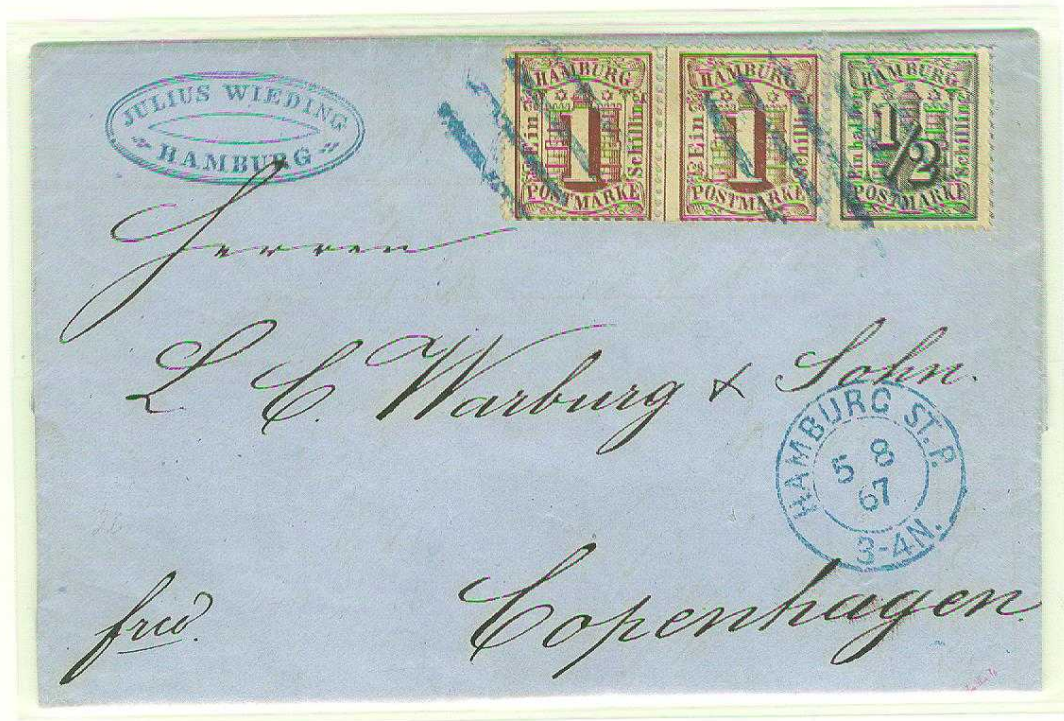 JULIUS WIEDING
HAMBURG
HAMBURG
Ein
1
Schilling
POSTMARKE
HAMBURG
Ein
1
Schilling
POSTMARKE
HAMBURG
Ein halber
1/2
Schilling
POSTMARKE
Herren
L. C. Warburg & Sohn.
HAMBURG ST. P.
5 8
67
3-4N.
frco.
Copenhagen.